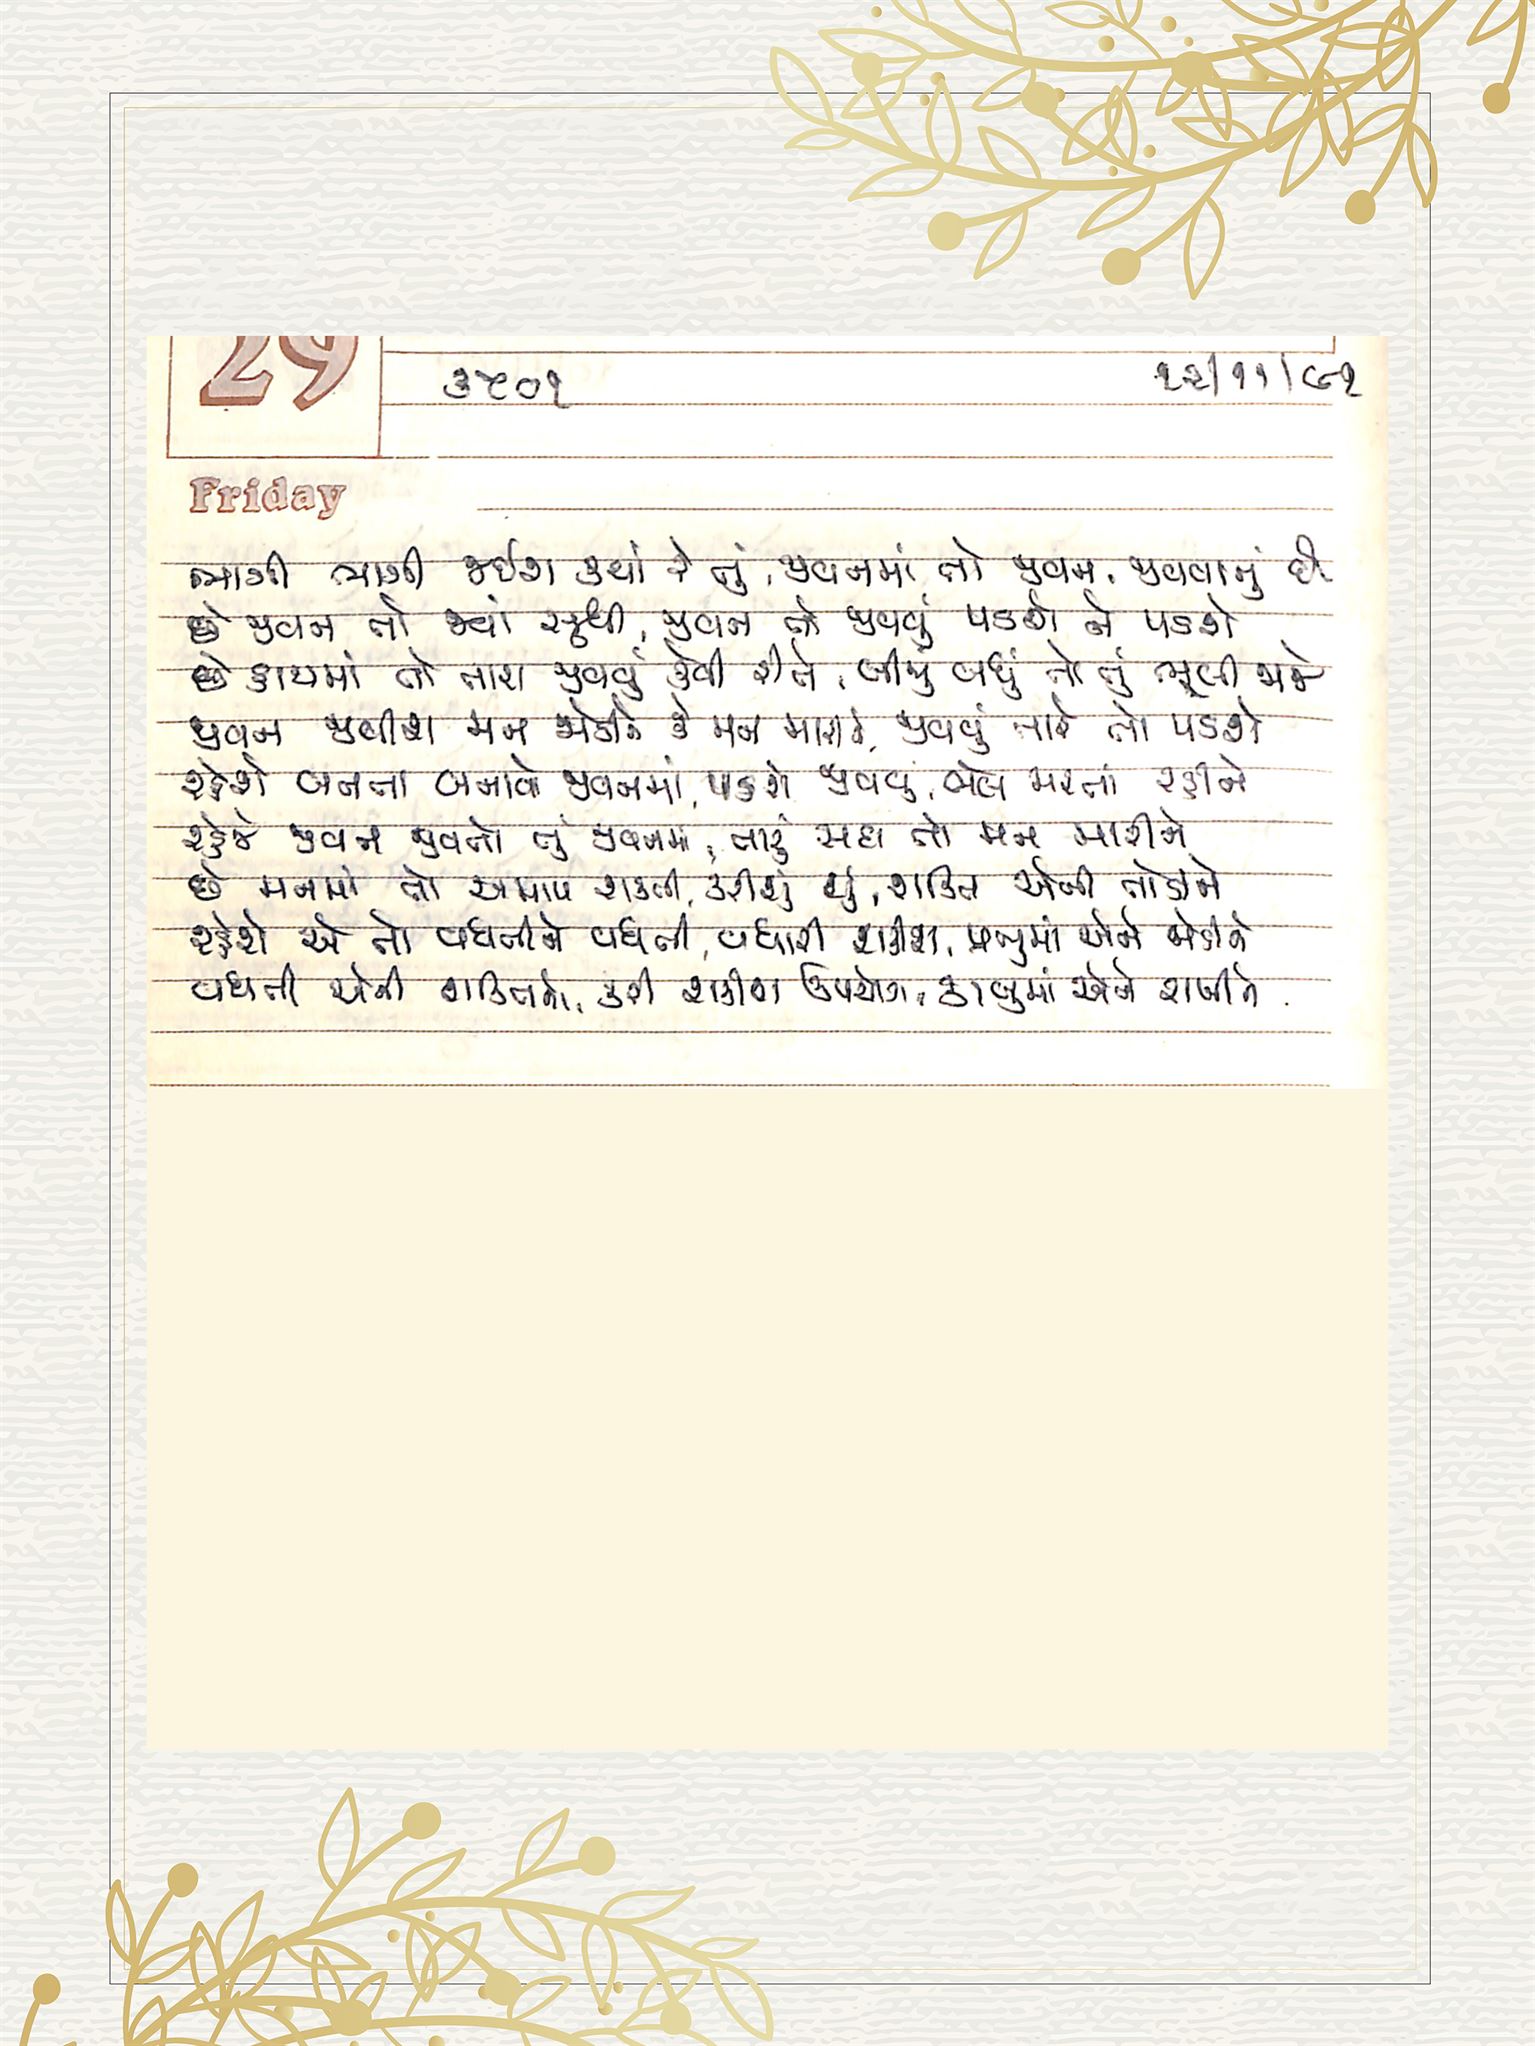 29
૩૫૦૧ ૨૨/૧૧/૯૧
Friday
ભાગી ભાગી જઈશ ક્યાં રે તું, જીવનમાં તો જીવન, જીવવાનું છે
છે જીવન તો જ્યાં સુધી, જીવન તો જીવવું પડશે ને પડશે
છે હાથમાં તો તારા જીવવું કેવી રીતે, બીજું બધું તો તું ભૂલી જાજે
જીવન જીવીશ મન જોડીને કે મન મારીને, જીવવું તારે તો પડશે
રહેશે બનતા બનાવો જીવનમાં, પડશે જીવવું, મેલ મરતાં રહીને
રહેજે જીવન જીવતો તું જીવનમાં, તારું સદા તો મન મારીને
છે મનમાં તો અમાપ શક્તિ, કરીશું શું, શક્તિ એની તોડીને
રહેશે એ તો વધતીને વધતી, વધારી શકીશ, પ્રભુમાં એને જોડીને
વધતી એની શક્તિનો, કરી શકીશ ઉપયોગ, કાબુમાં એને રાખીને.